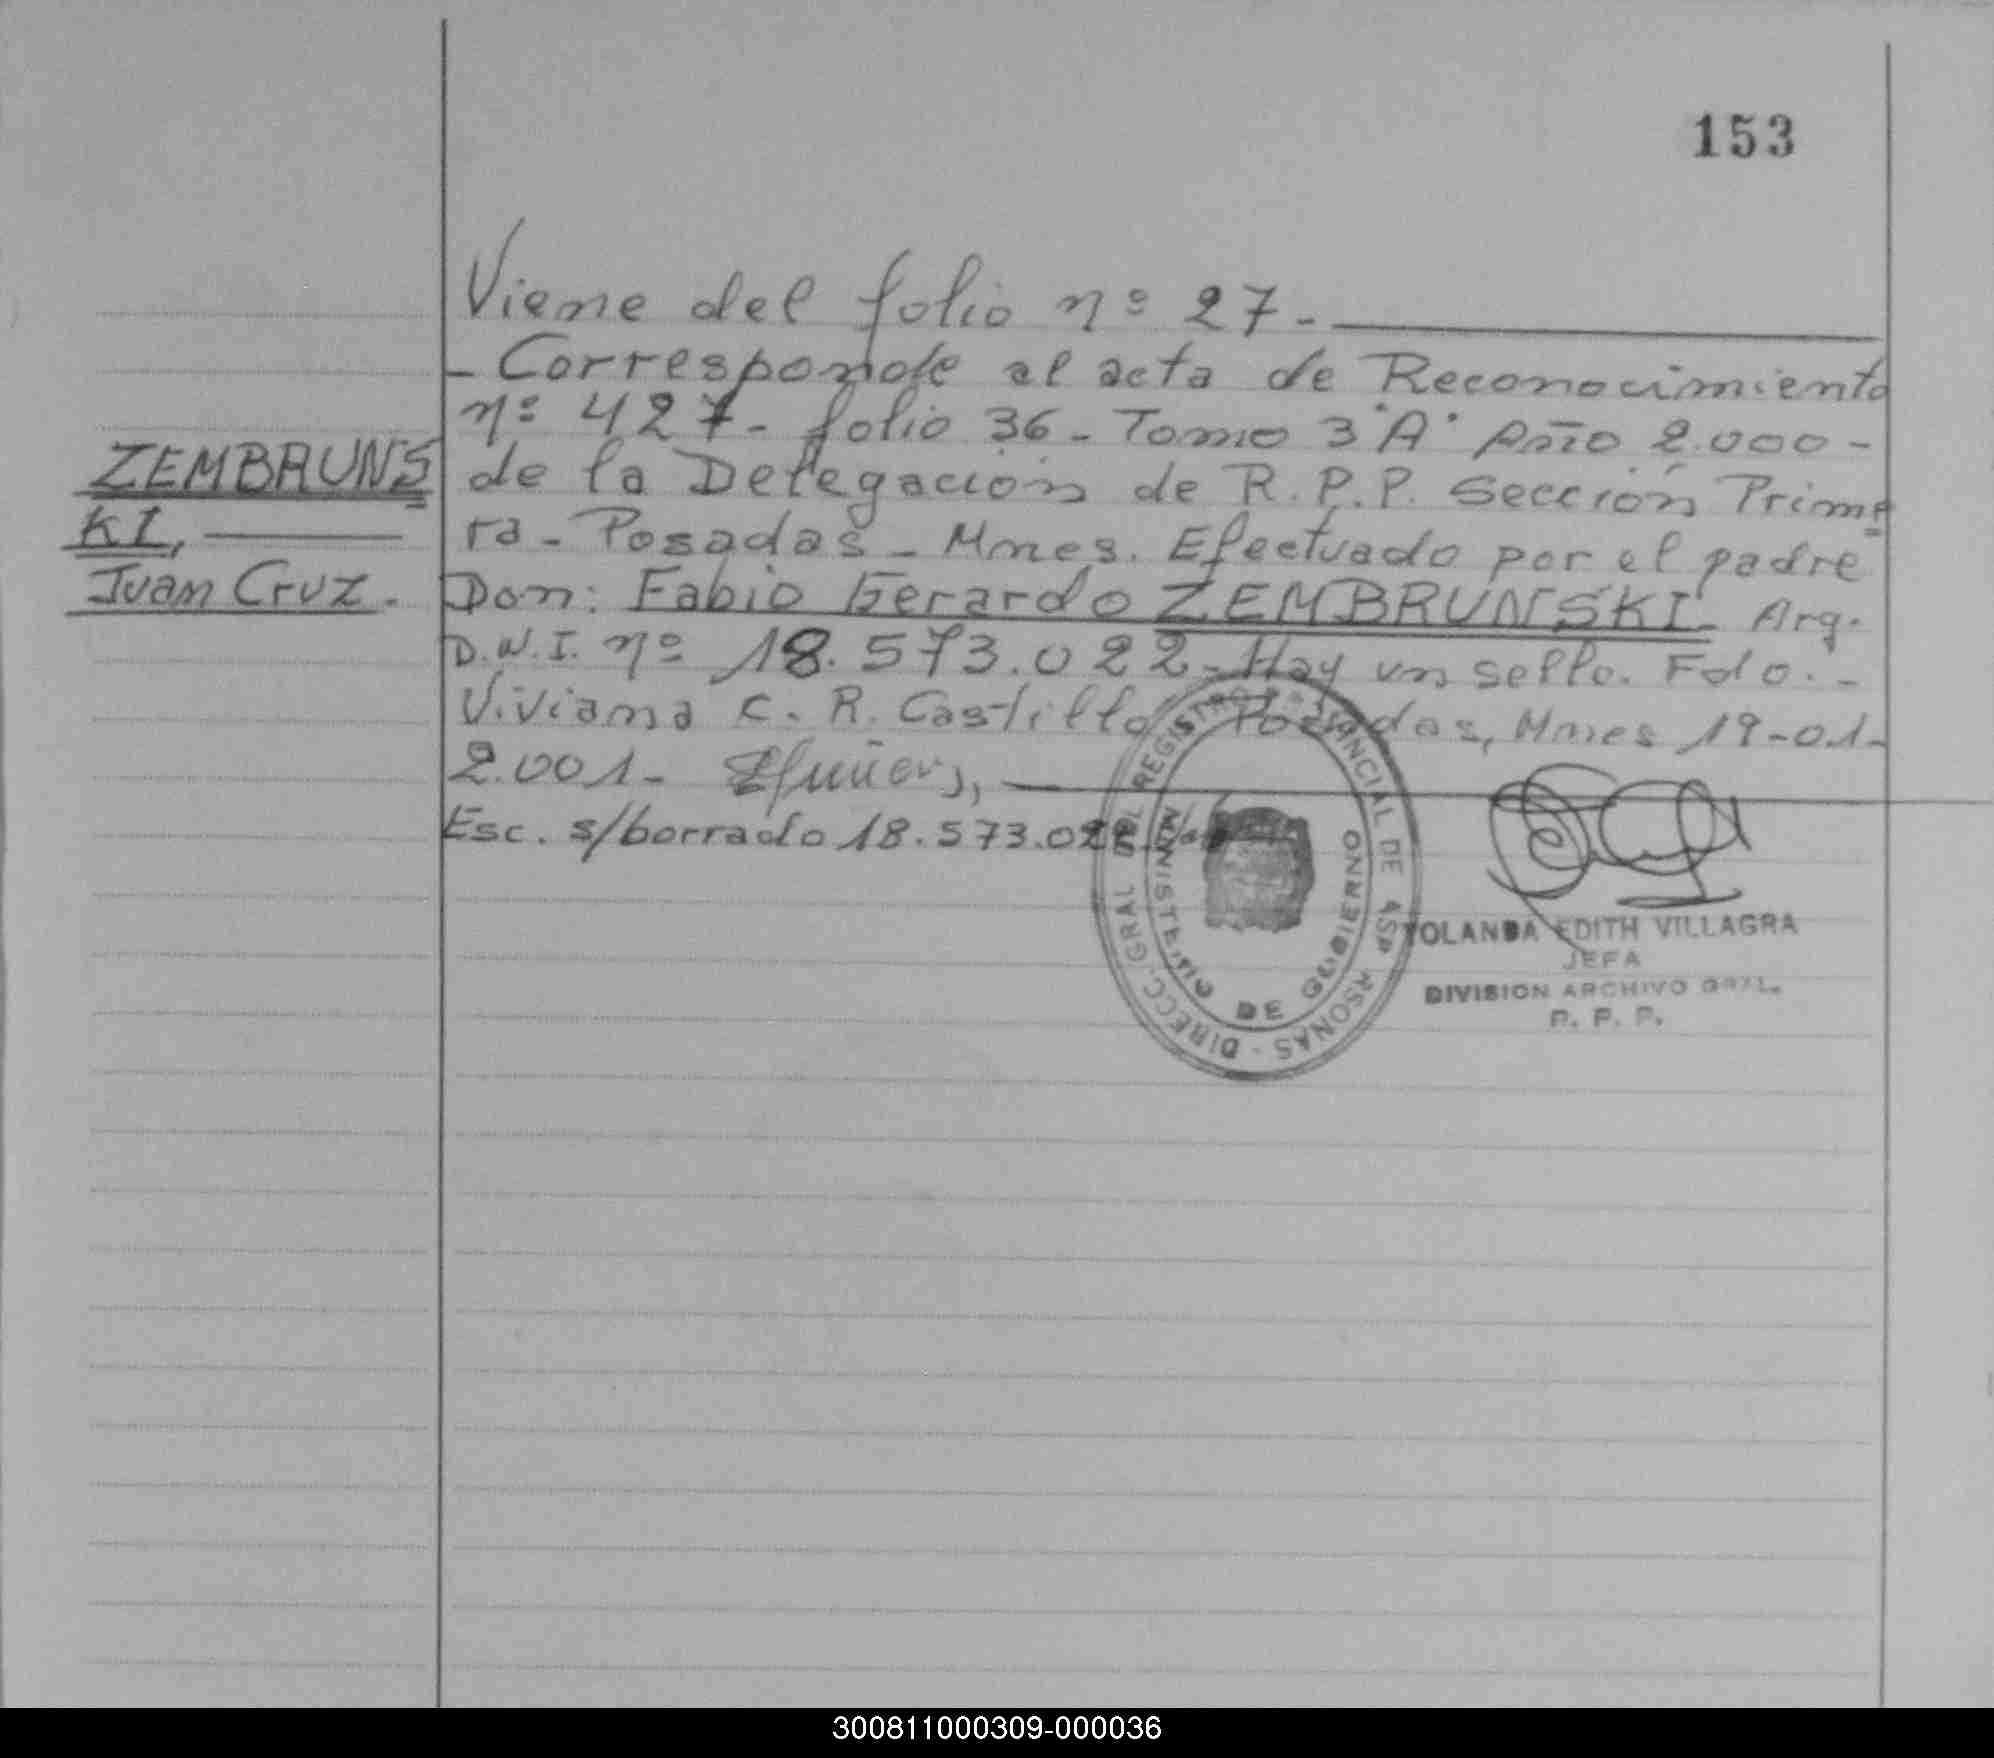 153
Viene del folio nº 27.-
- Corresponde al acta de Reconocimiento
nº 427- folio 36- Tomo 3ºAº Año 2.000-
ZEMBRUNS
de la Delegación de R.P.P. Sección Prime
KI,
ra- Posadas- Mnes. Efectuado por el padre
Juan Cruz.
Don: Fabio Gerardo ZEMBRUNSKI- Arg.
D.N.I. nº 18.573.022- Hay un sello. Fdo.-
Viviana C. R. Castillo Posadas, Mnes 19-01-
2.001-
Esc. s/borrado 18.573.022
DIRECC. GRAL DEL REGISTRO DE
MINISTERIO DE GOBIERNO
YOLANDA EDITH VILLAGRA
JEFA
DIVISION ARCHIVO GRAL.
R. P. P.
300811000309-000036